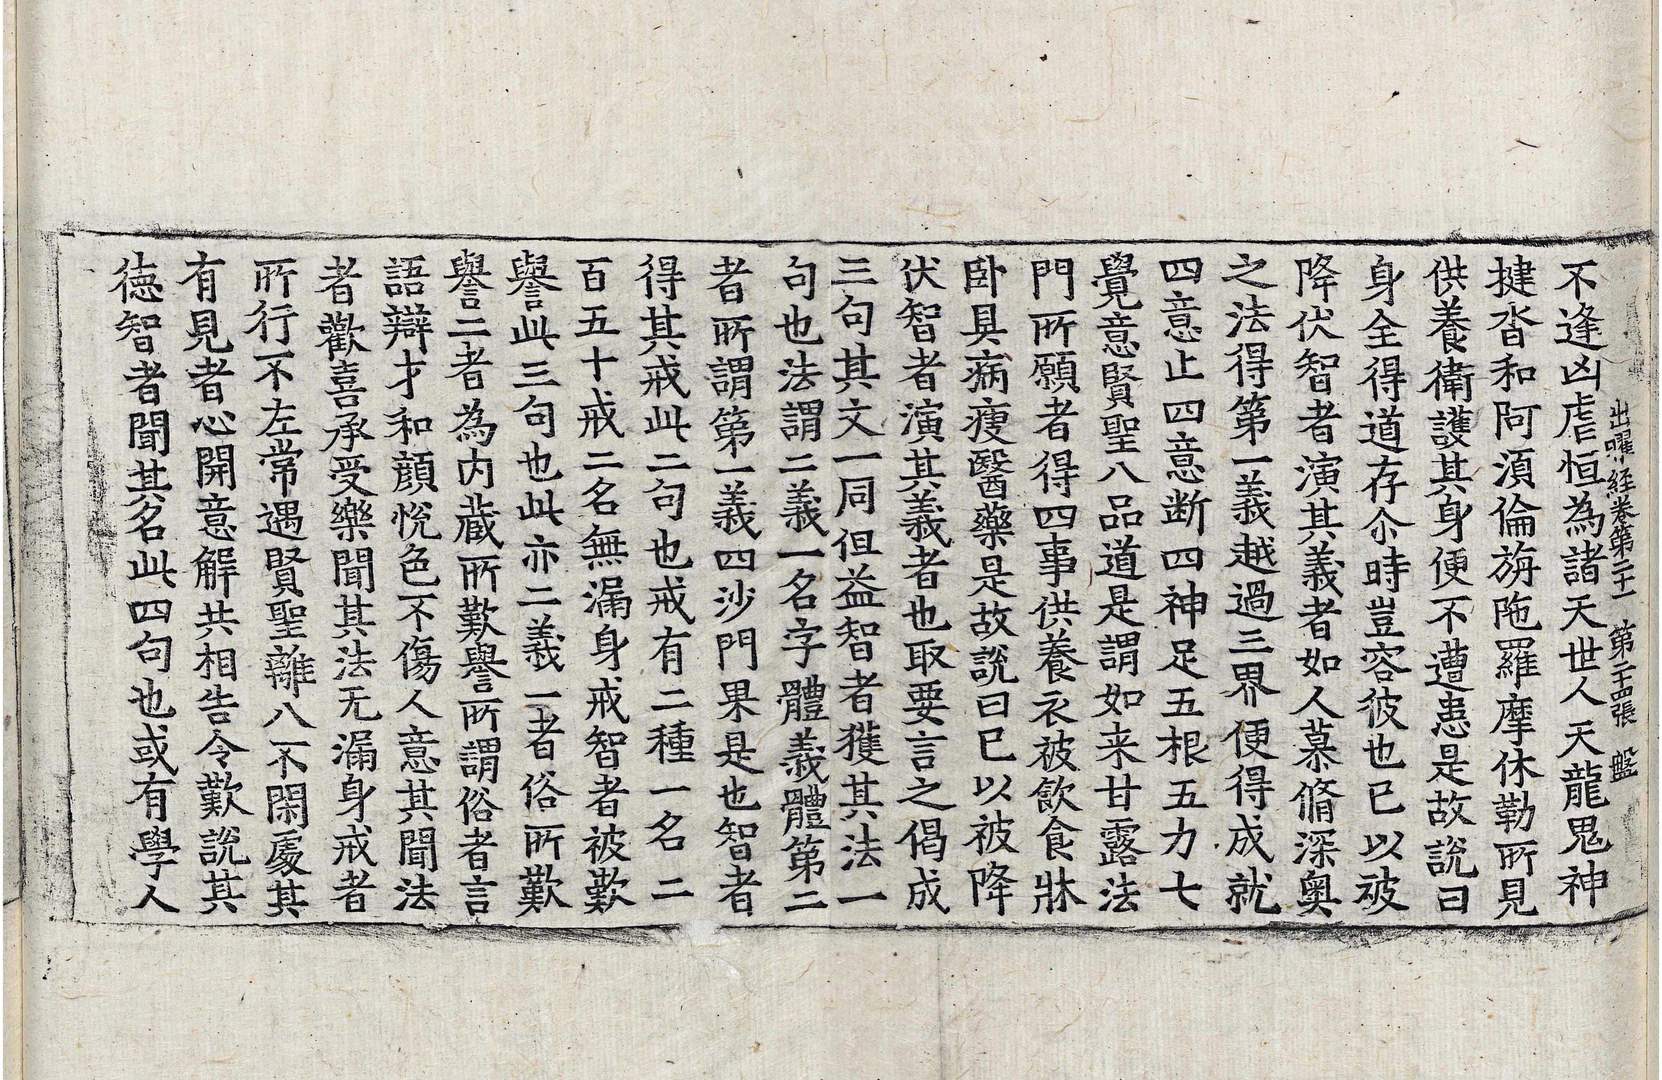 出曜經卷第二十一 第二十四張 盤
不逢凶虐恒為諸天世人天龍鬼神
揵沓和阿湏倫旃陁羅摩休勒所見
供養衛護其身便不遭患是故說曰
身全得道存尒時豈容彼也已以被
降伏智者演其義者如人慕脩深奧
之法得第一義越過三界便得成就
四意止四意断四神足五根五力七
覺意賢聖八品道是謂如来甘露法
門所願者得四事供養衣被飲食牀
卧具病瘦醫藥是故說曰已以被降
伏智者演其義者也取要言之偈成
三句其文一同但益智者獲其法一
句也法謂二義一名字體義體第二
者所謂第一義四沙門果是也智者
得其戒此二句也戒有二種一名二
百五十戒二名無漏身戒智者被歎
譽此三句也此亦二義一者俗所歎
譽二者為內藏所歎譽所謂俗者言
語辯才和顔悅色不傷人意其聞法
者歡喜承受樂聞其法无漏身戒者
所行不左常遇賢聖離八不閑處其
有見者心開意解共相告令歎說其
徳智者聞其名此四句也或有學人